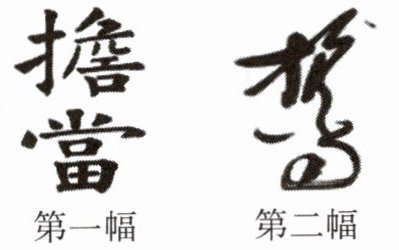 擔當
第一幅
擔當
第二幅